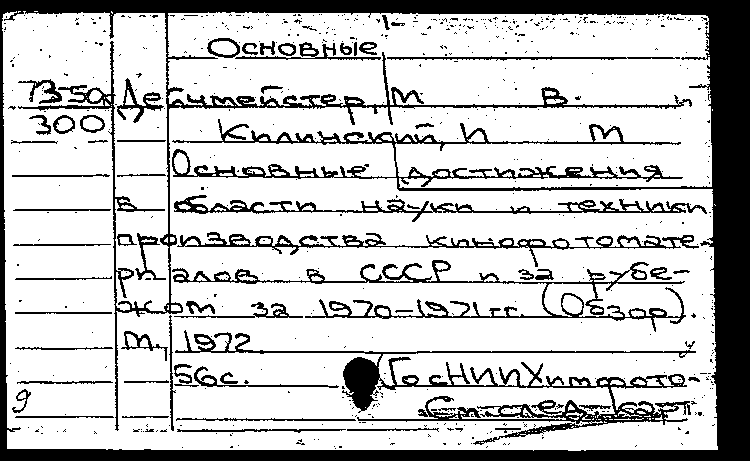 Основные
73-50
300
Дейчмейстер, М В. и
Килинский, И М
Основные достижения
в области науки и техники
производства кинофотомате-
риалов в СССР и за рубе-
жом за 1970-1971 гг. (Обзор).
М., 1972.
56 с. (ГосНИИХимфото-
См. след. карт.
9